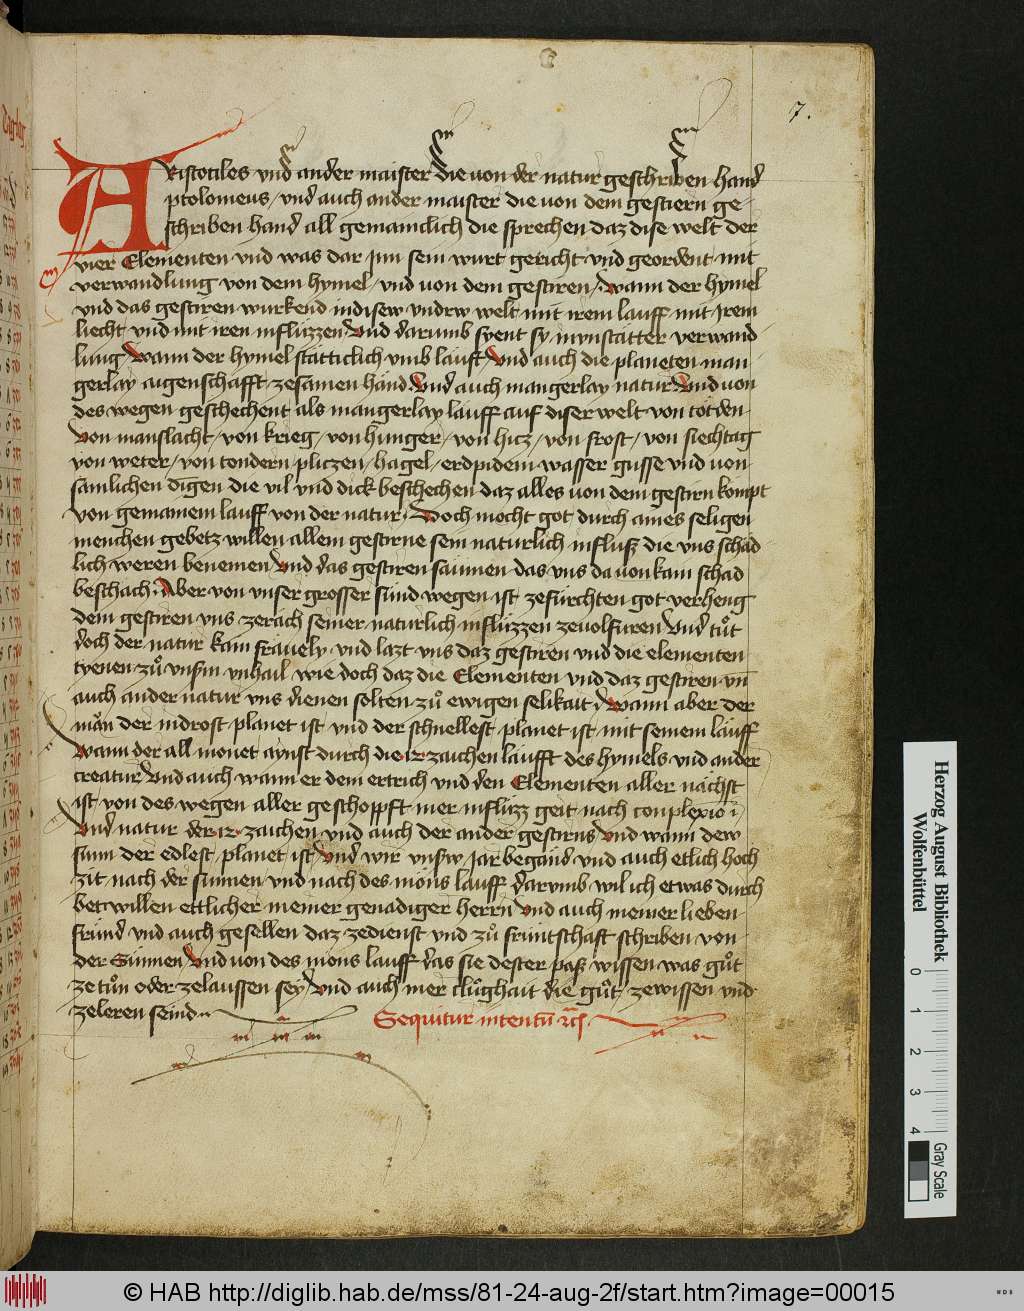 7.
Aristotiles vnd ander maister die von der natur geschriben hand
ptolomeus / vnd auch ander maister die von dem gestiern ge-
schriben hand all gemainclich die sprechen daz dise welt der
vier Elementen vnd was dar jnn sein wurt gericht vnd geordent mit
verwandlung von dem hymel / vnd von dem gestiren / wann der hymel
vnd das gestiren wurkend in disew vndrw welt mit irem lauff mit jrem
liecht vnd mit iren influzzen Vnd darumb syent sy mynstätter verwand
lung Wann der hymel stätticlich vmb läuft Vnd auch die planeten man
gerlay aigenschafft zesamen händ Vnd auch mangerlay natur Vnd von
des wegen geschechent als mangerlay läuff auf diser welt von tötden
Von manslacht / von krieg / von hunger / von hicz / von frost / von siechtag
von weter / von tondern pliczen / hagel / erdpidem wasser gusse vnd von
samlichen digen die vil vnd dick beschechen daz alles von dem gestirn kompt
von gemainem lauff von der natur Doch mocht got durch aines seligen
menchen gebetz willen allem gestirne sein naturlich influß die vns schäd
lich weren benemen Vnd das gestiren säumen das vns da von kain schad
beschäch Aber von vnser grosser sünd wegen ist zefürchten got verheng
dem gestiren vns zeräch seiner naturlich influzzen zeuolfüren Vnd tůt
doch der natur kain fräuely vnd lazt vns daz gestiren vnd die elementen
tyenen zů vnßm vnhail wie doch daz die Elementen vnd daz gestiren vn̄
auch ander natur vns dienen solten zů ewigen selikait Wann aber der
män der nidrost planet ist vnd der schnellest planet ist mit seinem läuff
Wann der all monet aynst durch die 12 zaichen läufft des hymels vnd ander
creatur Vnd auch wann er dem ertrich vnd den Elementen aller nächst
ist / von des wegen aller geschoppft mer influzz geit nach conplexio ī
Vnd natur der 12 zaichen vnd auch der ander gestirns Vnd wann dew
sunn der edlest planet ist Vnd wir vnßw jar begänd vnd auch etlich hoch
zit nach der sunnen vnd nach des möns lauff darumb wil ich etwas durch
bett willen ettlicher meiner genadiger herrn Vnd auch meiner lieben
fründ vnd auch gesellen daz zedienst vnd zů früntschaft schriben von
der Sunnen / Vnd von des möns lauff das sie dester paß wissen was gůt
ze tůn oder zelaussen sey Vnd auch mer clůghait die gůt zewissen vnd
zeleren seind
Sequitur intentū rc̄
Herzog August Bibliothek
Wolfenbüttel
0 1 2 3 4
Gray Scale
© HAB http://diglib.hab.de/mss/81-24-aug-2f/start.htm?image=00015